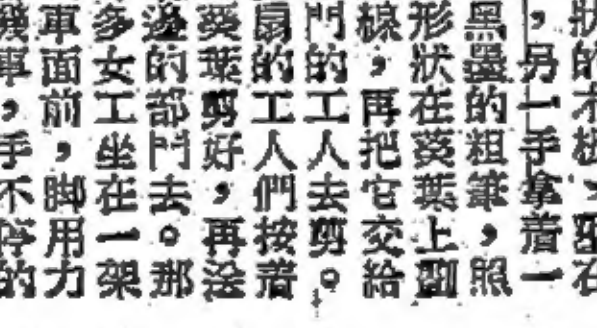 狀的木板
，另一手拿着一
黑墨的粗筆，照
形狀在葵葉上，劃
線，再把它交給
門的工人去剪。
扇的工人們按着
葵葉剪好，再送
邊的部門去。那
多女工坐在一架
車面前，脚用力
機車，手不停的